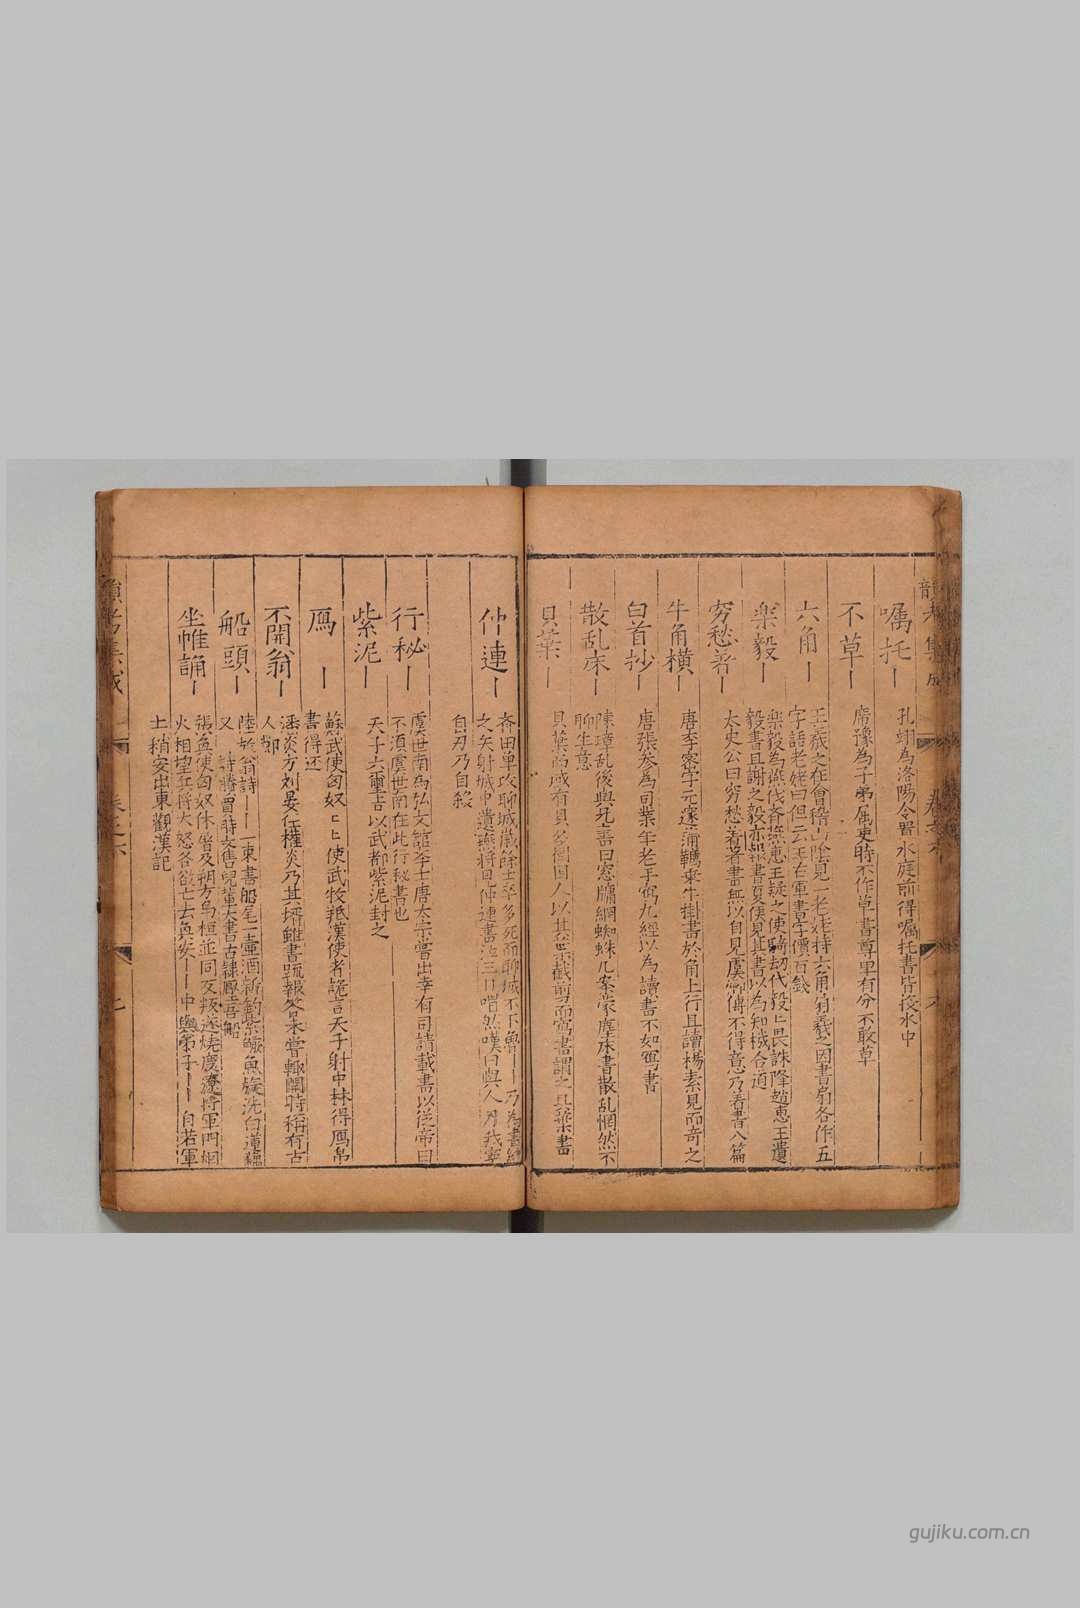 嘱托｜
孔翊為洛陽令置水庭前得嘱托書皆投水中
不草｜
為子弟屬吏時不作草書尊卑有分不敢草
六角｜
王羲之在會稽山陰見一老姥持六角扇羲之因書扇各作五
字語老姥曰但云王右軍書字價百錢
楽毅｜
楽毅為燕伐斉燕惠王疑之使騎劫代毅毅畏誅降趙惠王遺
毅書且謝之毅亦報書夏侯見其書以為知機合道
穷愁著｜
太史公曰穷愁著書無以自見虞卿傳不得意乃著書八篇
牛角横｜
唐李密字元邃蒲韉乘牛掛書於角上行且讀楊素見而奇之
白首抄｜
唐張参為司業年老手寫九經以為讀書不如寫書
散乱床｜
陳璋乱後與兄書曰窓牖網蜘蛛几案蒙塵床書散乱惘然不
聊生意
貝葉｜
貝葉西域有貝多樹国人以其葉截剪而寫書謂之貝葉書
仲連｜
斉田單攻聊城歳餘士卒多死而聊城不下魯｜｜乃為書約
之矢射城中遺燕將見仲連書泣三日喟然嘆曰與人刃我寧
自刃乃自殺
行秘｜
虞世南為弘文館学士唐太宗嘗出幸有司請載書以從帝曰
不須虞世南在此行秘書也
紫泥｜
天子六璽皆以武都紫泥封之
鴈｜
蘇武使匈奴ヒヒ使武牧羝漢使者詭言天子射中林得鴈帛
書得还
不開翁｜
人即
船頭｜
陸放翁詩｜｜一束書船尾一壷酒新釣紫鱖魚旋洗白蓮藕
又
坐帷誦｜
張奐使匈奴休屠及朔方烏桓並同反叛遂燒度遼將軍門烟
火相望兵將大怒各欲亡去奐安｜｜中與弟子｜｜自若軍
士稍安出東觀漢記
gujiku.com.cn